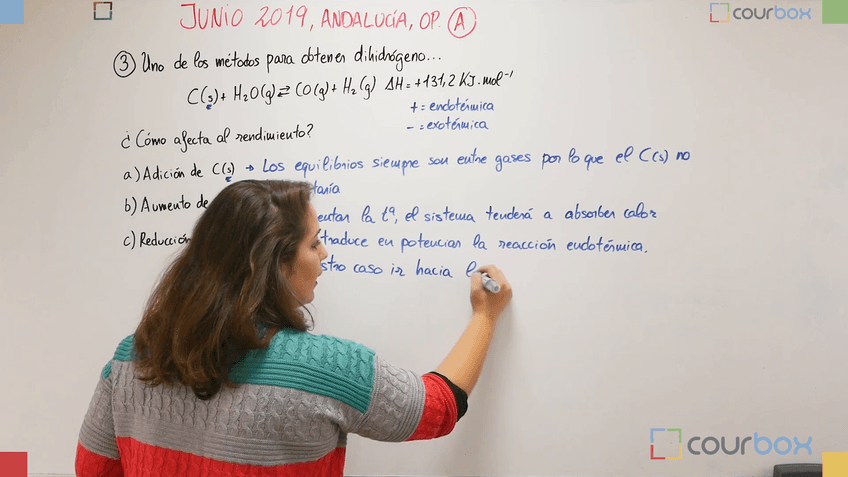 JUNIO 2019, ANDALUCÍA, OP. A
courbox
3 Uno de los métodos para obtener dihidrógeno...
C(s) + H₂O(g) ⇄ CO(g) + H₂(g) ΔH = +131,2 KJ·mol⁻¹
+ = endotérmica
- = exotérmica
¿Cómo afecta al rendimiento?
a) Adición de C(s) → Los equilibrios siempre son entre gases por lo que el C(s) no
b) Aumento de
la tª, el sistema tenderá a absorber calor
c) Reducción
traduce en potenciar la reacción endotérmica.
caso ir hacia
courbox